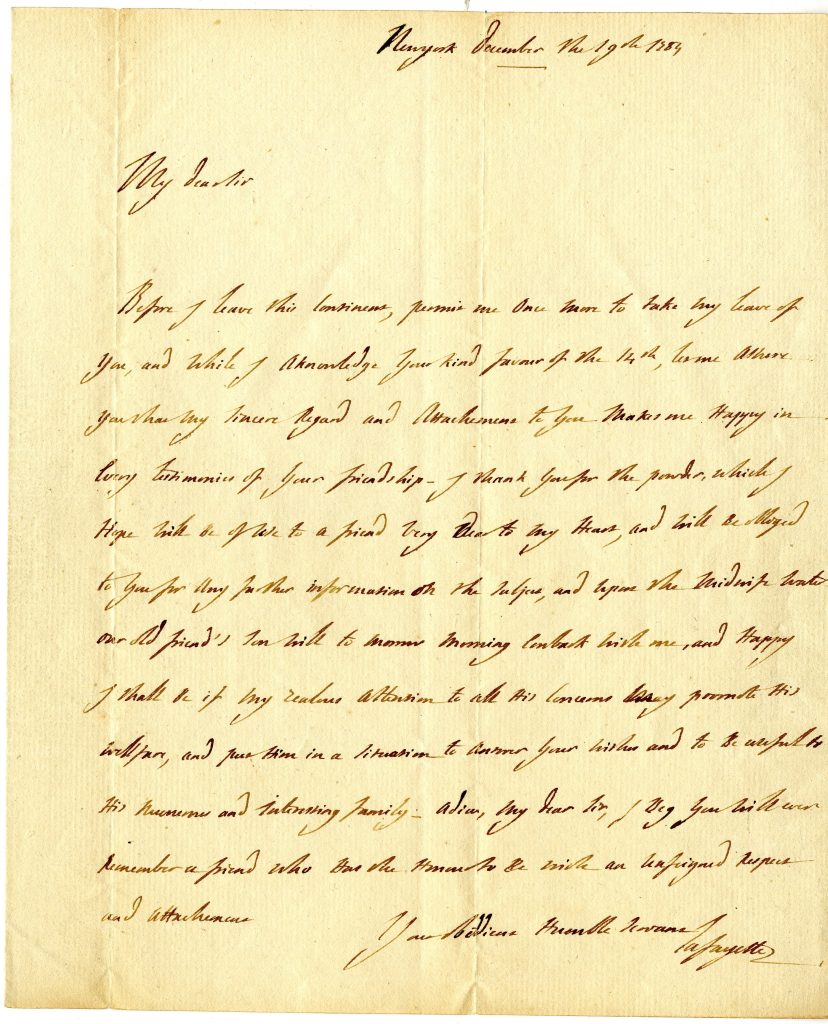 Newyork december the 19th 1784
My dear sir
Before I leave this Continent, permit me Once More to take My leave of
You, and While I Aknowledge Your Kind favour of the 14th, let me Assure
You that My Sincere Regard and Attachement to You Makes me Happy in
Every testimonies of Your friendship - I thank You for the powder, which I
Hope Will Be of Use to a friend Very Dear to My Heart, and will Be obliged
to You for Any further information on the Subject, and Upon the Midwife Water
our old friend's Son Will to morrow Morning Embark With me, and Happy
I shall Be if My zealous Attention to all His Concerns May promote His
Wellfare, and put Him in a Situation to Answer Your Wishes and to Be Usefull to
His Numerous and Interesting family - Adieu, My dear Sir, I Beg You Will ever
Remember a friend who Has the Honor to Be with an Unfeigned Respect
and Attachement
Your Obedient Humble Servant
Lafayette